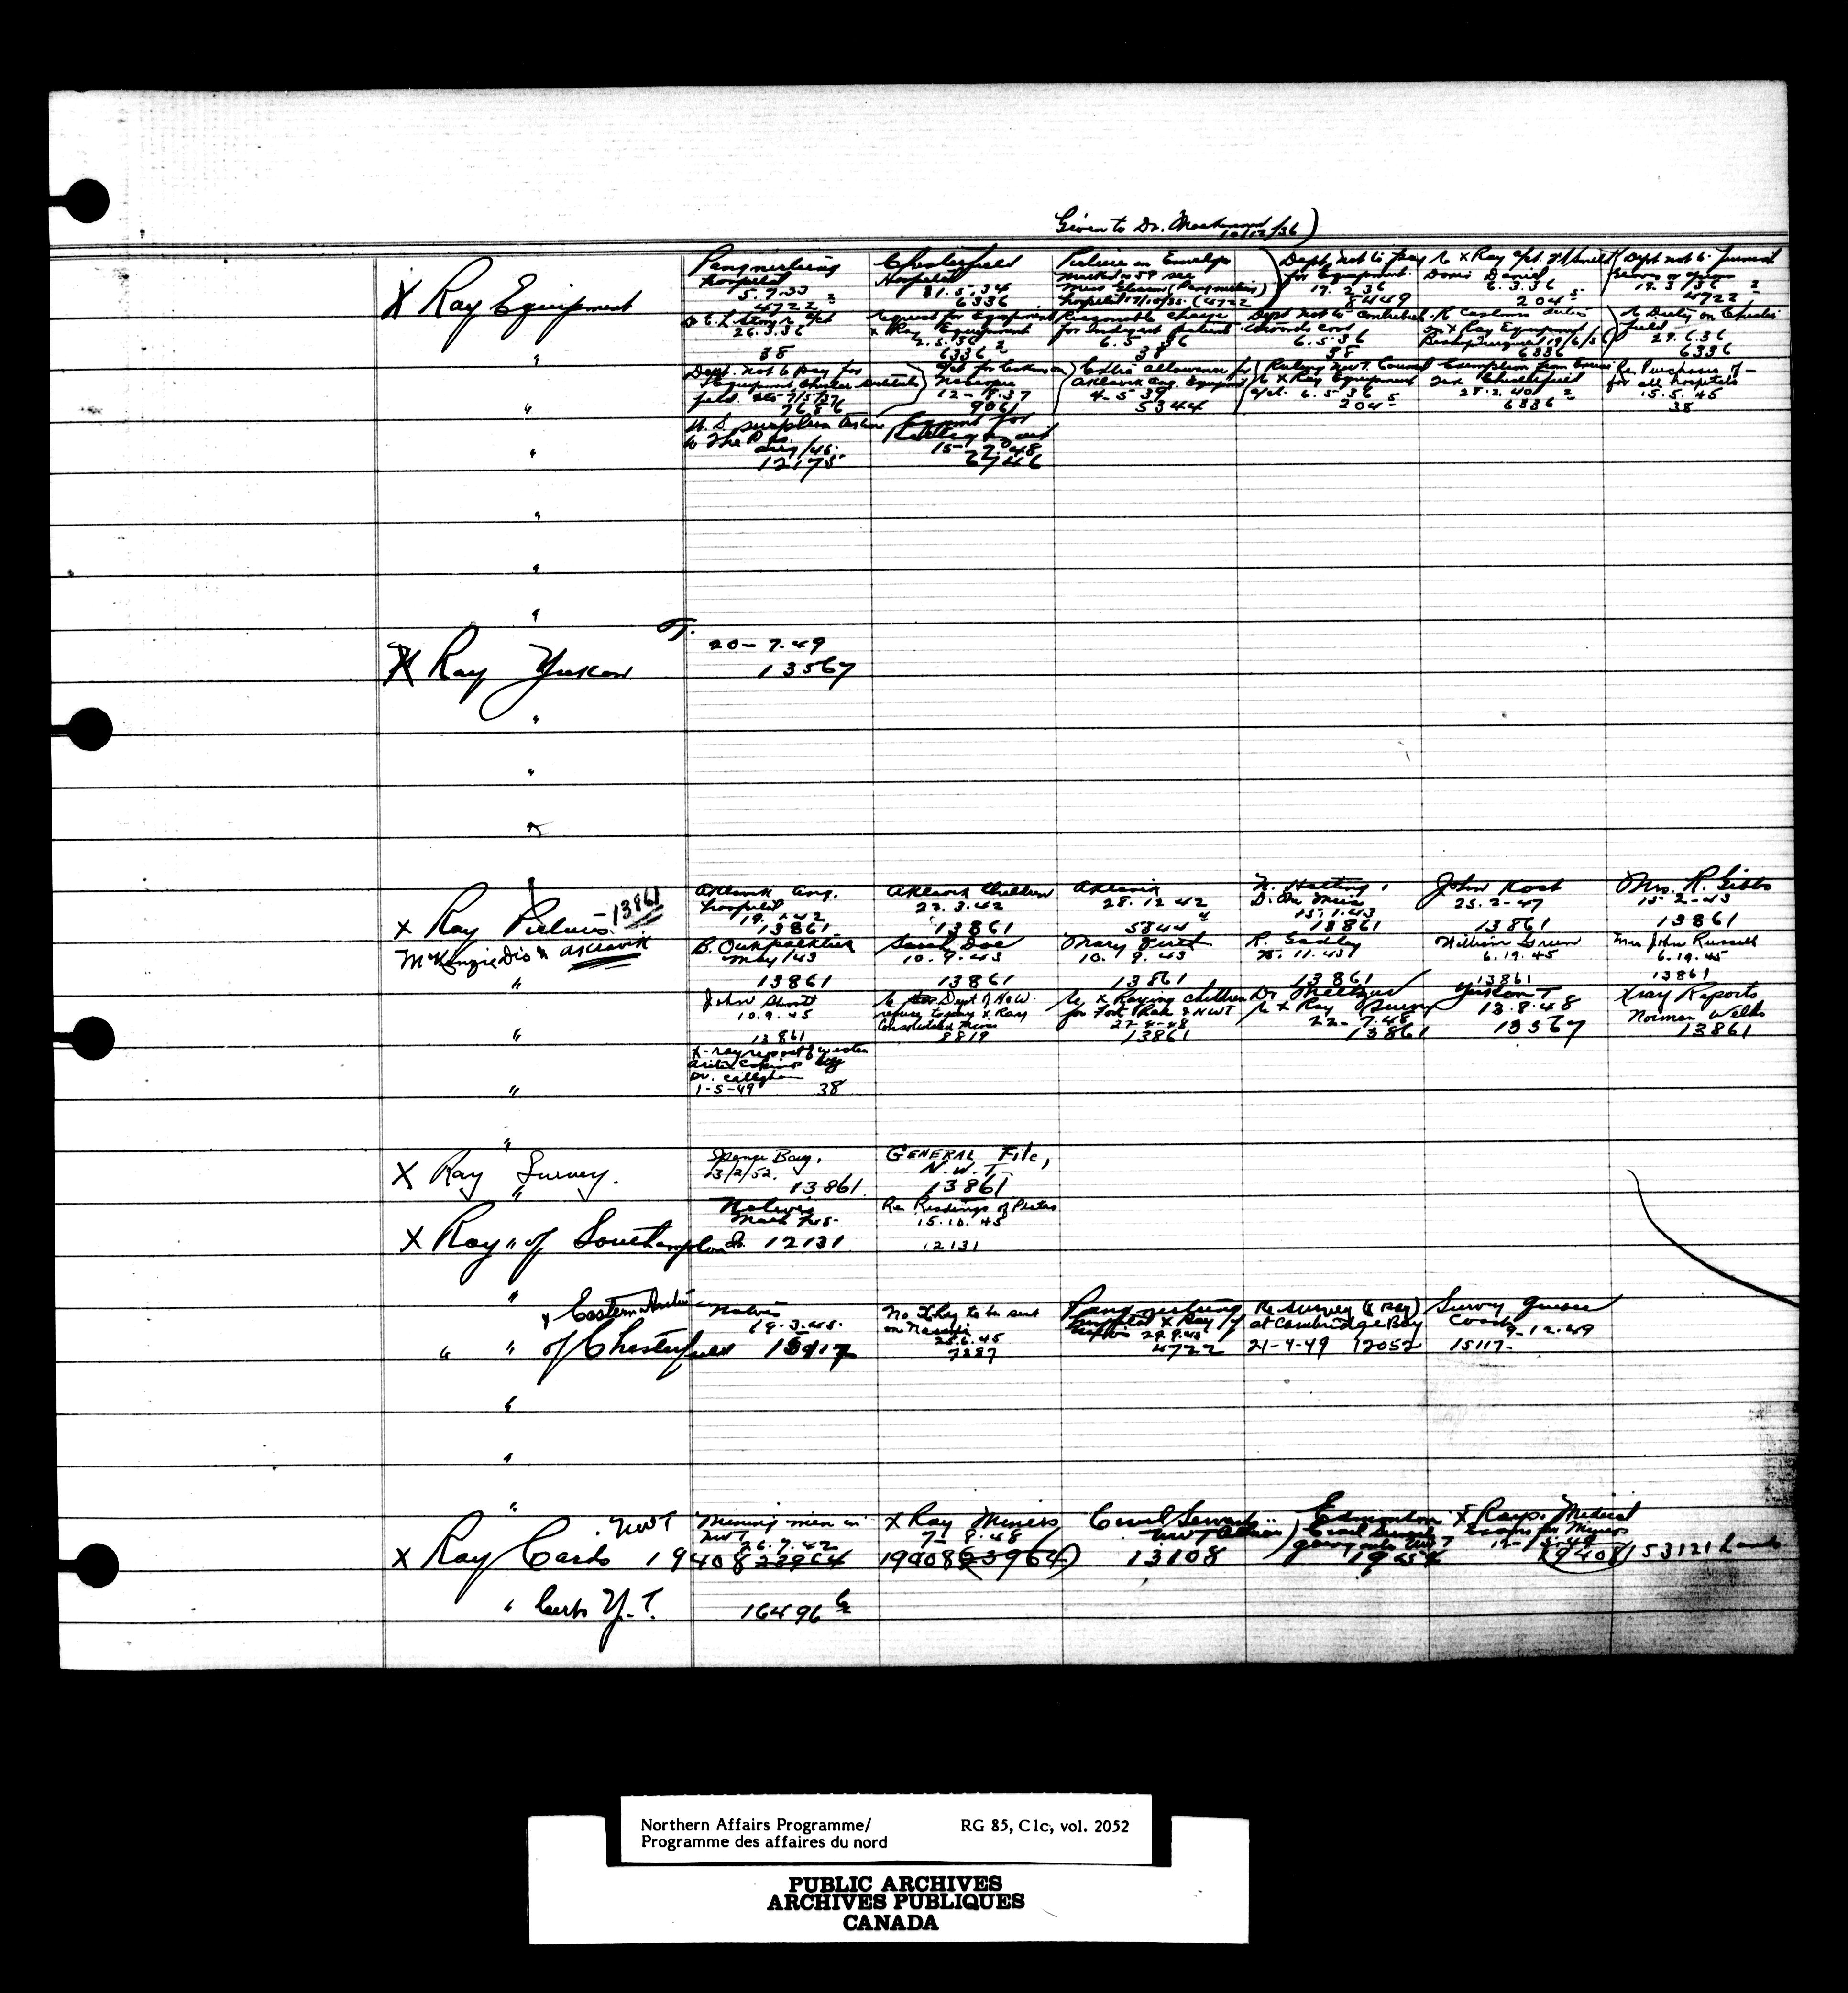 Given to Dr.
10/12/36)
X Ray Equipment
Pangnirtung
hospital
5.7.33
4722 2
Chesterfield
Hospital
31.5.34
6336
Picture in Envelope
marked 59 see
Miss (Pangnirtung)
hospital 17/10/35. (4722
Dept. not to pay
for Equipment.
17.2.36
8449
re X Ray apt. Ft Smith
Doris Daniel
6.3.36
204 5
Dept not to furnish
19.3/36
4722 2
26.3.36
38
request for Equipment
X Ray Equipment
2.5.36
6336 2
Reasonable charge
for Indigent patients
6.5.36
38
Dept not to contribute
towards cost
6.5.36
38
re Customs duties
on X Ray Equipment
19/6/36
6336
re Duty on Chester
field
29.6.36
6336
"
Dept. not to pay for
Equipment Chester
field 7/5/37
7686
12-8.37
9061
Extra allowance for
Aklavik Ang. Equipment
4-5-39
5344
Ruling N.W.T. Council
re X Ray Equipment
6.5.36
204 5
Exemption from Excise
Tax Chesterfield
28.2.40
6336 2
Re Purchases of -
for all hospitals
15.5.45
38
"
U.S surplus
to The Pas.
Aug/46.
12175
15-7.48
6746
"
"
"
"
X Ray Yukon T.
20-7.49
13567
"
"
"
X Ray Pictures 13861
McKenzie Dis & Aklavik
Aklavik Ang.
hospital
19.1.42
13861
Aklavik Children
22.3.42
13861
Aklavik
28.12.42
5344 4
N.
15.1.43
13861
John Kost
25.2-47
13861
Mrs. R. Gibbs
15-2-43
13861
"
B.
May/43
13861
Sarah Doe
10.9.43
13861
Mary Firth
10.9.43
13861
R.
13861
William Green
6.19.45
13861
Mrs John Russell
6.19.45
13861
"
John
10.9.45
13861
re Dept of H&W.
refuse to pay X Ray
Consolidated Mines
8819
re X Raying children
for Fort Rae & NWT
22-4-48
13861
Dr Meltzer
re X Ray Survey
22-7.48
13861
Yukon T
13.8.48
13567
Xray Reports
Norman Wells
13861
"
X-ray report of western
arctic Eskimos by
Dr. Callaghan
1-5-49 38
"
X Ray Survey.
Spence Bay.
13/2/52.
13861
GENERAL File,
N.W.T.
13861
"
X Ray " of Southampton Is.
Natives
12131
Re Readings of Plates
15.10.45
12131
"
" " of Chesterfield & Eastern Arctic
Natives
19.3.45.
No X Ray to be sent
on Nascopie
25.6.45
7387
Pangnirtung
hospital X Ray
29.9.45
4722
Re survey (X Ray)
at Cambridge Bay
21-4-49 12052
Survey Quebec
Coast
9-12.49
15117-
"
"
"
X Ray Cards NWT
Mining men in
NWT
26.7.42
19408 23964
X Ray Miners
7-8.48
19408 (23964)
Civil Servants
13108
Edmonton
Civil Servants
X Rays. Medical
Exams for Miners
(19408) 153121
" Cards Y.T.
16496
Northern Affairs Programme/
Programme des affaires du nord
RG 85, C1c, vol. 2052
PUBLIC ARCHIVES
ARCHIVES PUBLIQUES
CANADA